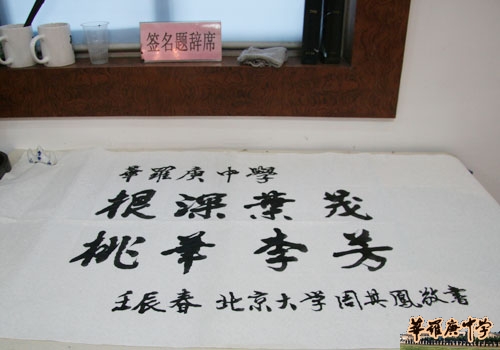 签名题辞席
華羅庚中學
根深葉茂
桃華李芳
壬辰春 北京大学周其鳳敬書
華羅庚中学